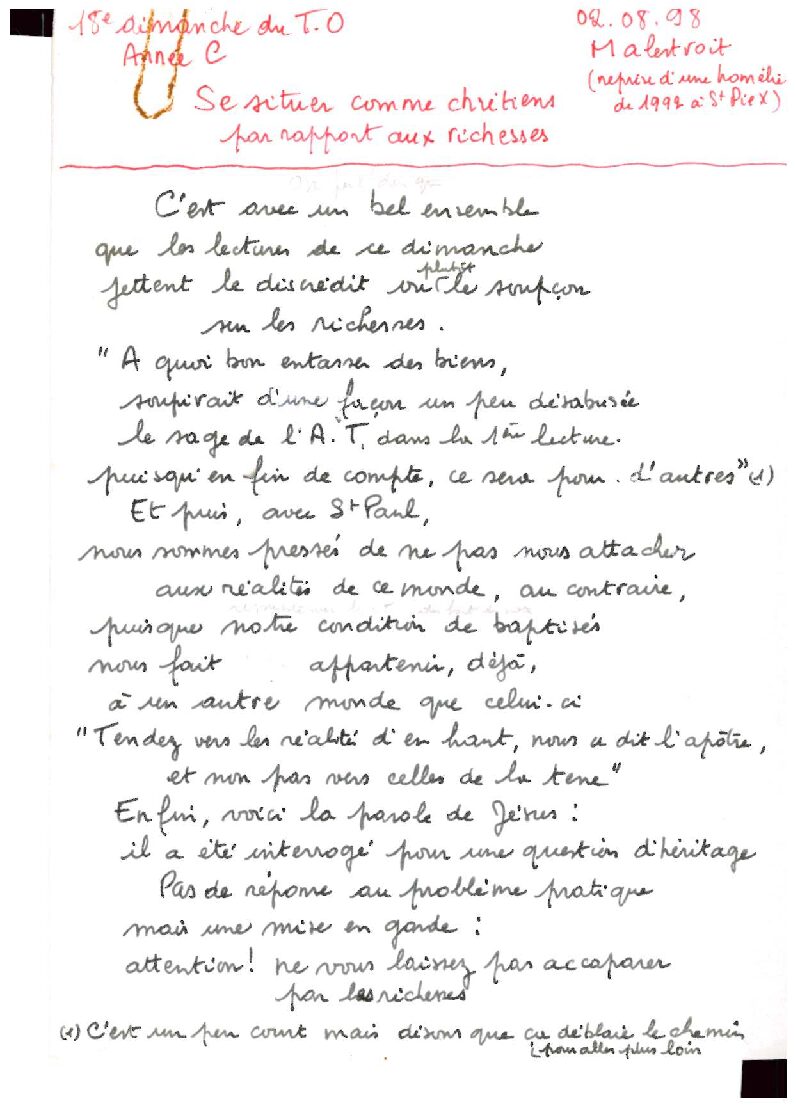 18e dimanche du T.O
Année C
02.08.98
Malestroit
(reprise d'une homélie
de 1992 à St Pie X)
Se situer comme chrétiens
par rapport aux richesses
C'est avec un bel ensemble
que les lectures de ce dimanche
jettent le discrédit ou plutôt le soupçon
sur les richesses.
"A quoi bon entasser des biens,
soupirait d'une façon un peu désabusée
le sage de l'A.T. dans la 1ère lecture.
puisqu'en fin de compte, ce sera pour d'autres" (1)
Et puis, avec St Paul,
nous sommes pressés de ne pas nous attacher
aux réalités de ce monde, au contraire,
puisque notre condition de baptisés
nous fait appartenir, déjà,
à un autre monde que celui-ci
"Tendez vers les réalités d'en haut, nous a dit l'apôtre,
et non pas vers celles de la terre"
Enfin, voici la parole de Jésus :
il a été interrogé pour une question d'héritage
Pas de réponse au problème pratique
mais une mise en garde :
attention! ne vous laissez pas accaparer
par les richesses
(1) C'est un peu court mais disons que ça déblaie le chemin
pour aller plus loin